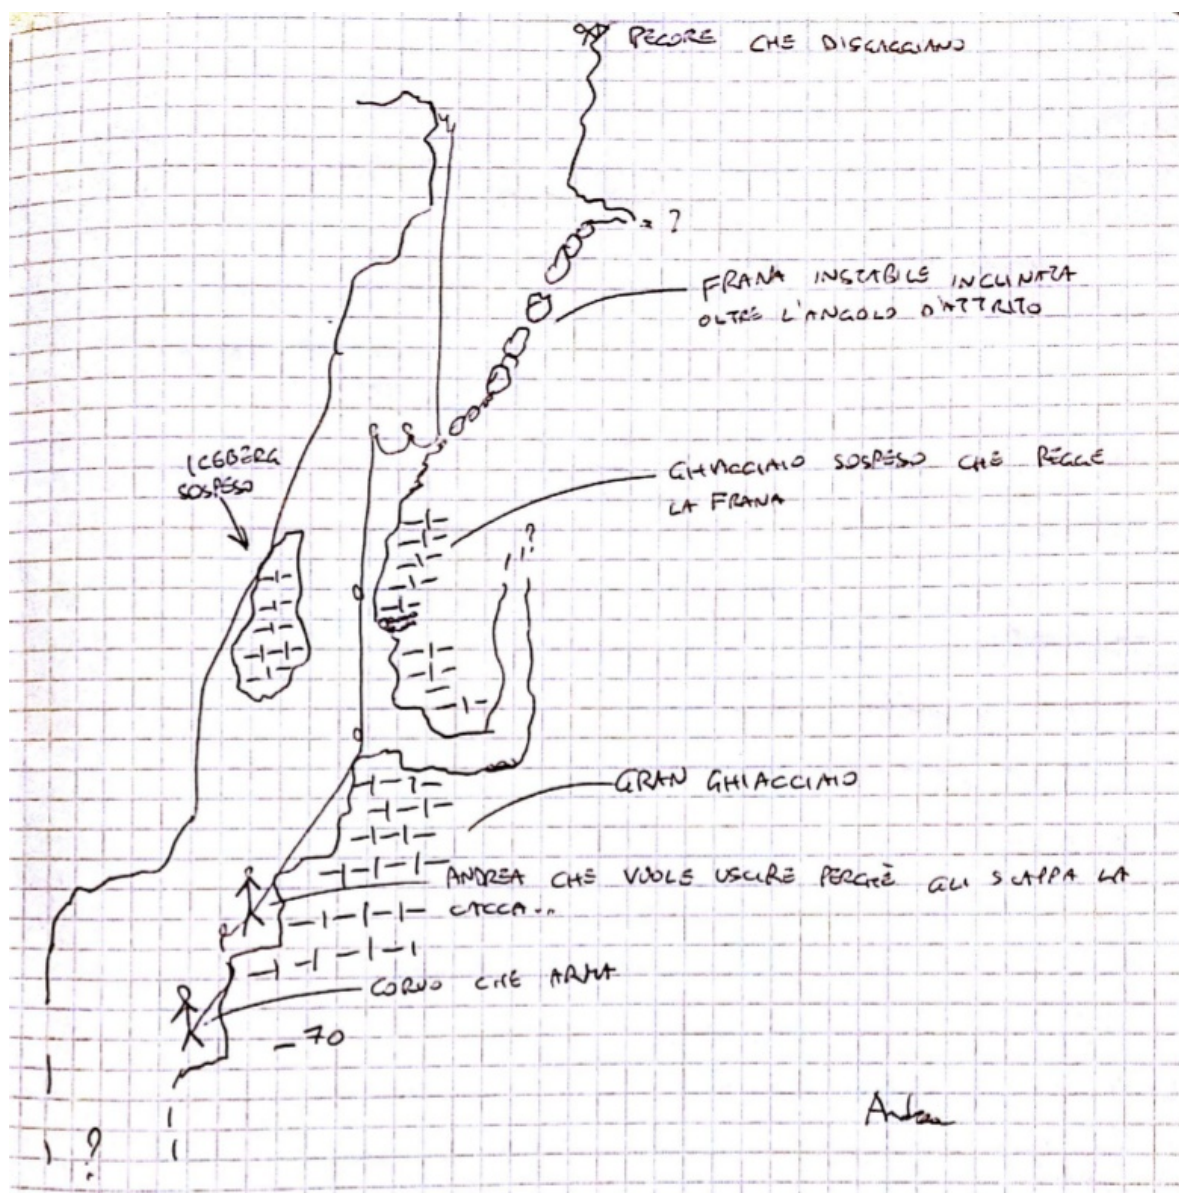 PECORE CHE DISCAGGIANO
?
FRANA INSTABILE INCLINATA
OLTRE L'ANGOLO D'ATTRITO
ICEBERG
SOSPESO
GHIACCIAIO SOSPESO CHE REGGE
LA FRANA
?
GRAN GHIACCIAIO
ANDREA CHE VUOLE USCIRE PERCHÈ GLI SCAPPA LA
CACCA...
CORVO CHE ARMA
-70
?
Andrea